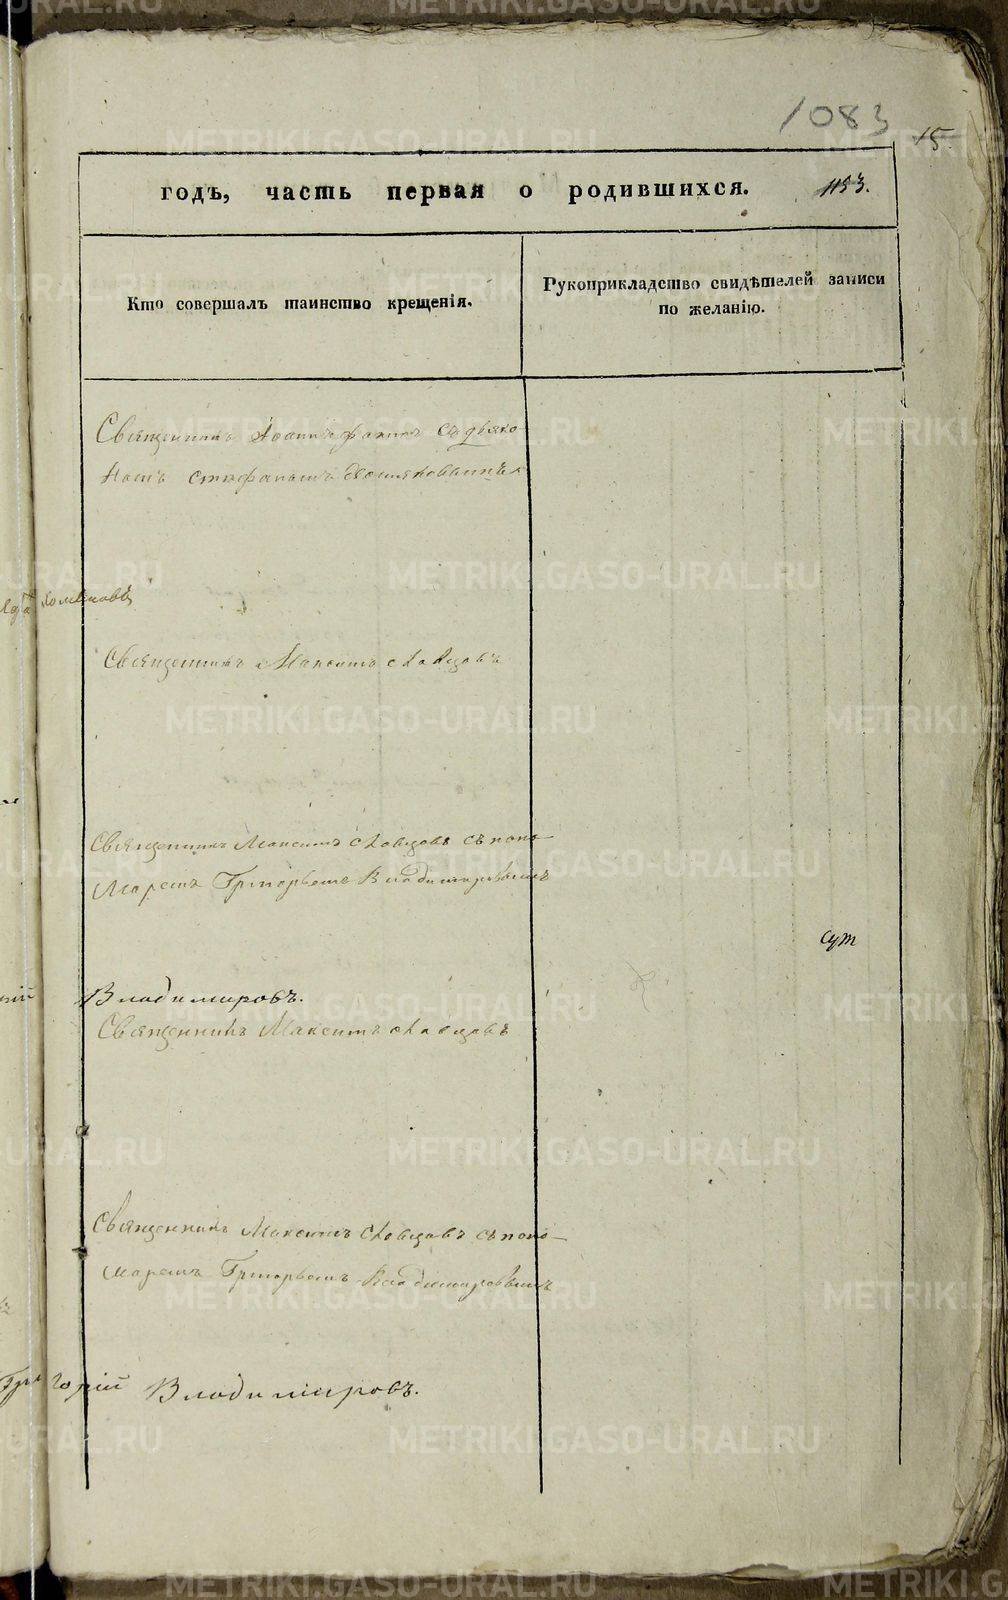 1083
15
годъ, часть первая о родившихся. 1153.
Кто совершалъ таинство крещенія.
Рукоприкладство свидѣтелей записи
по желанію.
Священникъ съ дьяко
номъ Стефаномъ
Священникъ Максимъ
Священникъ Максимъ съ поно-
маремъ Григорьемъ Владимировымъ
сут
Владимировъ.
Священникъ Максимъ
Священникъ Максимъ съ поно-
маремъ Григорьемъ Владимировымъ
Григорій Владимировъ.
METRIKI.GASO-URAL.RU